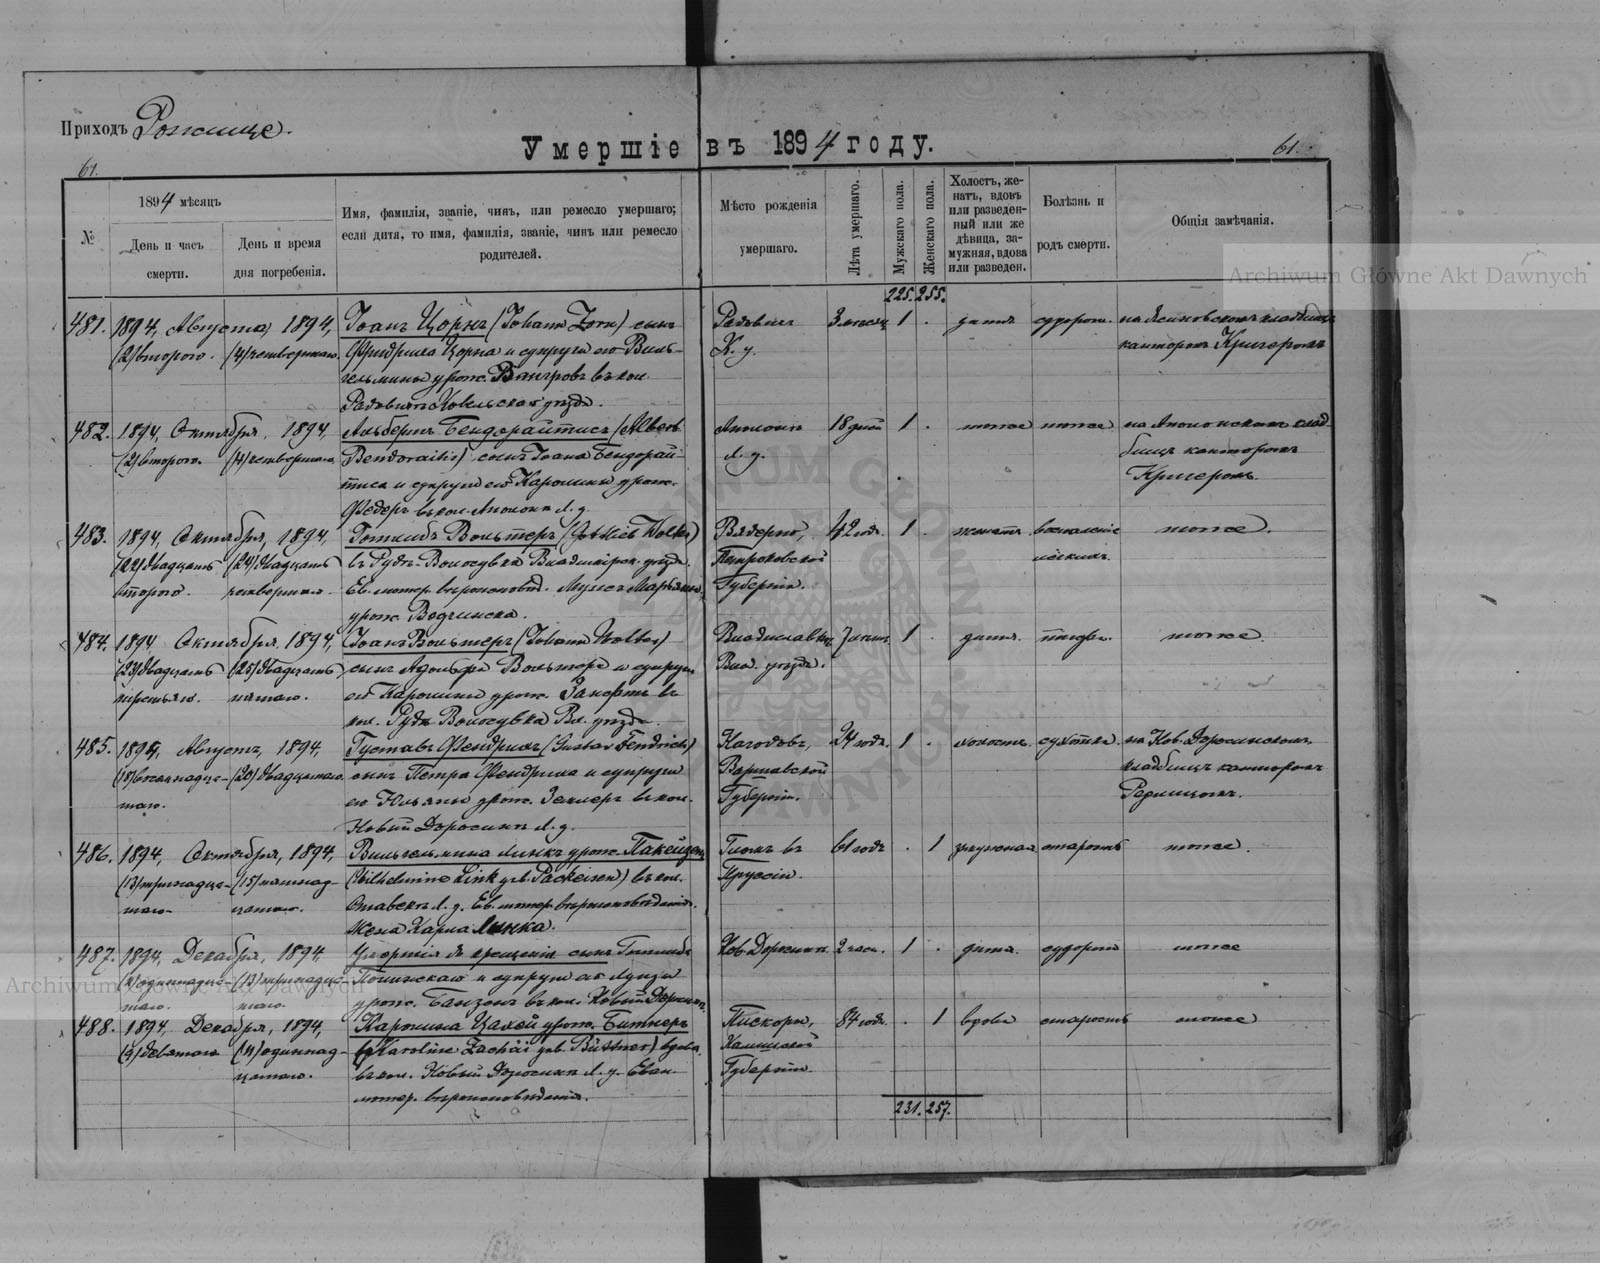 Приходъ Рожище.
Умершіе въ 1894 году.
61.
61.
№
1894 мѣсяцъ
День и часъ смерти.
День и время дня погребенія.
Имя, фамилія, званіе, чинъ, или ремесло умершаго;
если дитя, то имя, фамилія, званіе, чинъ или ремесло
родителей.
Мѣсто рожденія
умершаго.
Лѣта умершаго.
Мужскаго пола.
Женскаго пола.
Холостъ, же-
натъ, вдовъ
или разведен-
ный или же
дѣвица, за-
мужняя, вдова
или разведен.
Болѣзнь и
родъ смерти.
Общія замѣчанія.
225. 255.
481. 1894, Августа, 1894,
(2) второго. (4) четвертаго.
Іоанъ Цорнъ (Johann Zorn) сынъ
Фридриха Цорна и супруги его Виль-
гельмины урож. въ кол.
Ковельскаго уѣзда.
К. у.
1 .
дитя
судорож.
канторомъ Кригеромъ
482. 1894, Октября, 1894,
(2) второго. (4) четвертаго.
Альбертъ Бендорайтисъ (Albert
Bendoraitis) сынъ Іоана Бендорай-
тиса и супруги его Каролины урож.
Федеръ въ кол. Аполонія Л. у.
Л. у.
18 дней
1 .
тоже
тоже
на клад
бищѣ канторомъ
Кригеромъ.
483. 1894, Октября, 1894,
(22) двадцать (24) двадцать
второго. четвертаго.
Готлибъ Вольтеръ (Gottlieb Wolter)
въ Рудѣ-Волосувка Владимірск. уѣзда.
Ев. лютер. вѣроисповѣд. Мужъ Маріанны
урож.
Петроковской
Губерніи.
42 год.
1 .
женатъ
воспаленіе
легкихъ.
тоже.
484. 1894 Октября, 1894,
(23) двадцать (25) двадцать
третьяго. пятаго.
Іоанъ Вольтеръ (Johann Wolter)
сынъ Адольфа Вольтера и супруги
его Каролины урож. въ
кол. Рудѣ Волосувка Вл. уѣзда.
Вл. уѣзда.
1 .
дитя.
тоже.
485. 1894, Августъ, 1894,
(18) восемнадца- (20) двадцатаго.
таго.
Густавъ Фендрихъ (Gustav Fendrich)
сынъ Петра Фендриха и супруги
его Юліяны урож. въ кол.
Новый Доросинъ Л. у.
Варшавской
Губерніи.
24 год.
1 .
холостъ.
сухотка.
на Нов. Доросинскомъ
кладбищѣ канторомъ
486. 1894, Октября, 1894,
(13) тринадца- (15) пятнад-
таго. цатаго.
Вильгельмина Линкъ урож. Пакейзенъ
(Wilhelmine Link geb. Packeisen) въ кол.
Л. у. Ев. лютер. вѣроисповѣданія.
Жена Карла Линка.
въ
Пруссіи.
61 годъ
. 1
замужняя
старость
тоже.
487. 1894, Декабря, 1894
(11) одиннадца- (13) тринадца-
таго. таго.
Умершій до крещенія сынъ Готлиба
и супруги его Луизы
урож. въ кол. Новый Доросинъ.
Нов. Доросинъ
2 час.
1 .
дитя.
судороги
тоже
488. 1894, Декабря, 1894,
(9) девятаго (11) одиннад-
цатаго.
Каролина Цахей урож. Битнеръ
(Karoline Zachäi geb. Büttner) вдова,
въ кол. Новый Доросинъ Л. у. Еван.
лютер. вѣроисповѣданія.
Пискоры,
Калишской
Губерніи.
84 год.
. 1
вдова
старость
тоже
231. 257.
Archiwum Główne Akt Dawnych
Archiwum Główne Akt Dawnych
ARCHIWUM GŁÓWNE AKT DAWNYCH